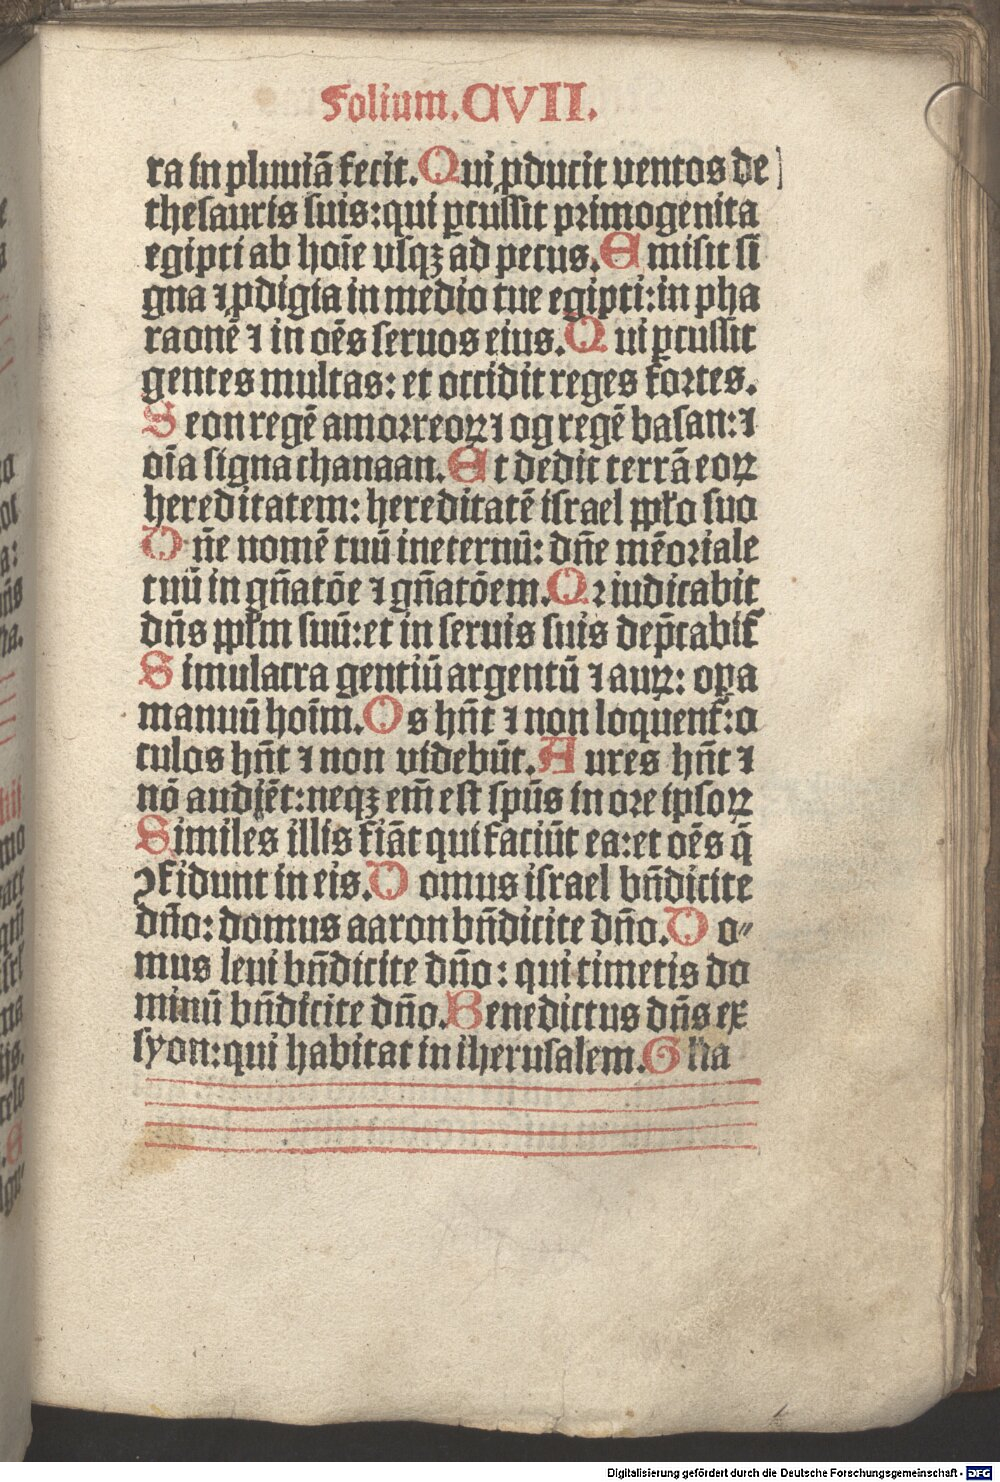 Folium.CVII.
ra in pluuiā fecit. Qui ꝓducit ventos de
thesauris suis: qui ꝑcussit primogenita
egipti ab hoīe vsqꝫ ad pecus. Emisit si
gna ⁊ ꝓdigia in medio tue egipti: in pha
raonē ⁊ in oēs seruos eius. Qui ꝑcussit
gentes multas: et occidit reges fortes.
Seon regē amorreoꝝ ⁊ og regē basan: ⁊
oīa signa chanaan. Et dedit terrā eoꝝ
hereditatem: hereditatē israel pplo suo
Dn̄e nomē tuū ineternū: dn̄e mēoriale
tuū in gn̄atōe ⁊ gn̄atōem. Qꝛ iudicabit
dn̄s pplm suū: et in seruis suis dep̄cabit̄
Simulacra gentiū argentū ⁊ auꝝ: oꝑa
manuū hoīm. Os hn̄t ⁊ non loquent̄: o
culos hn̄t ⁊ non videbūt. Aures hn̄t ⁊
nō audiēt: neqꝫ em̄ est spūs in ore ipsoꝝ
Similes illis fiāt qui faciūt ea: et oēs q̄
ꝯfidunt in eis. Domus israel bn̄dicite
dn̄o: domus aaron bn̄dicite dn̄o. Do⸗
mus leui bn̄dicite dn̄o: qui timetis do
minū bn̄dicite dn̄o. Benedictus dn̄s ex
syon: qui habitat in iherusalem. Glia
Digitalisierung gefördert durch die Deutsche Forschungsgemeinschaft - DFG